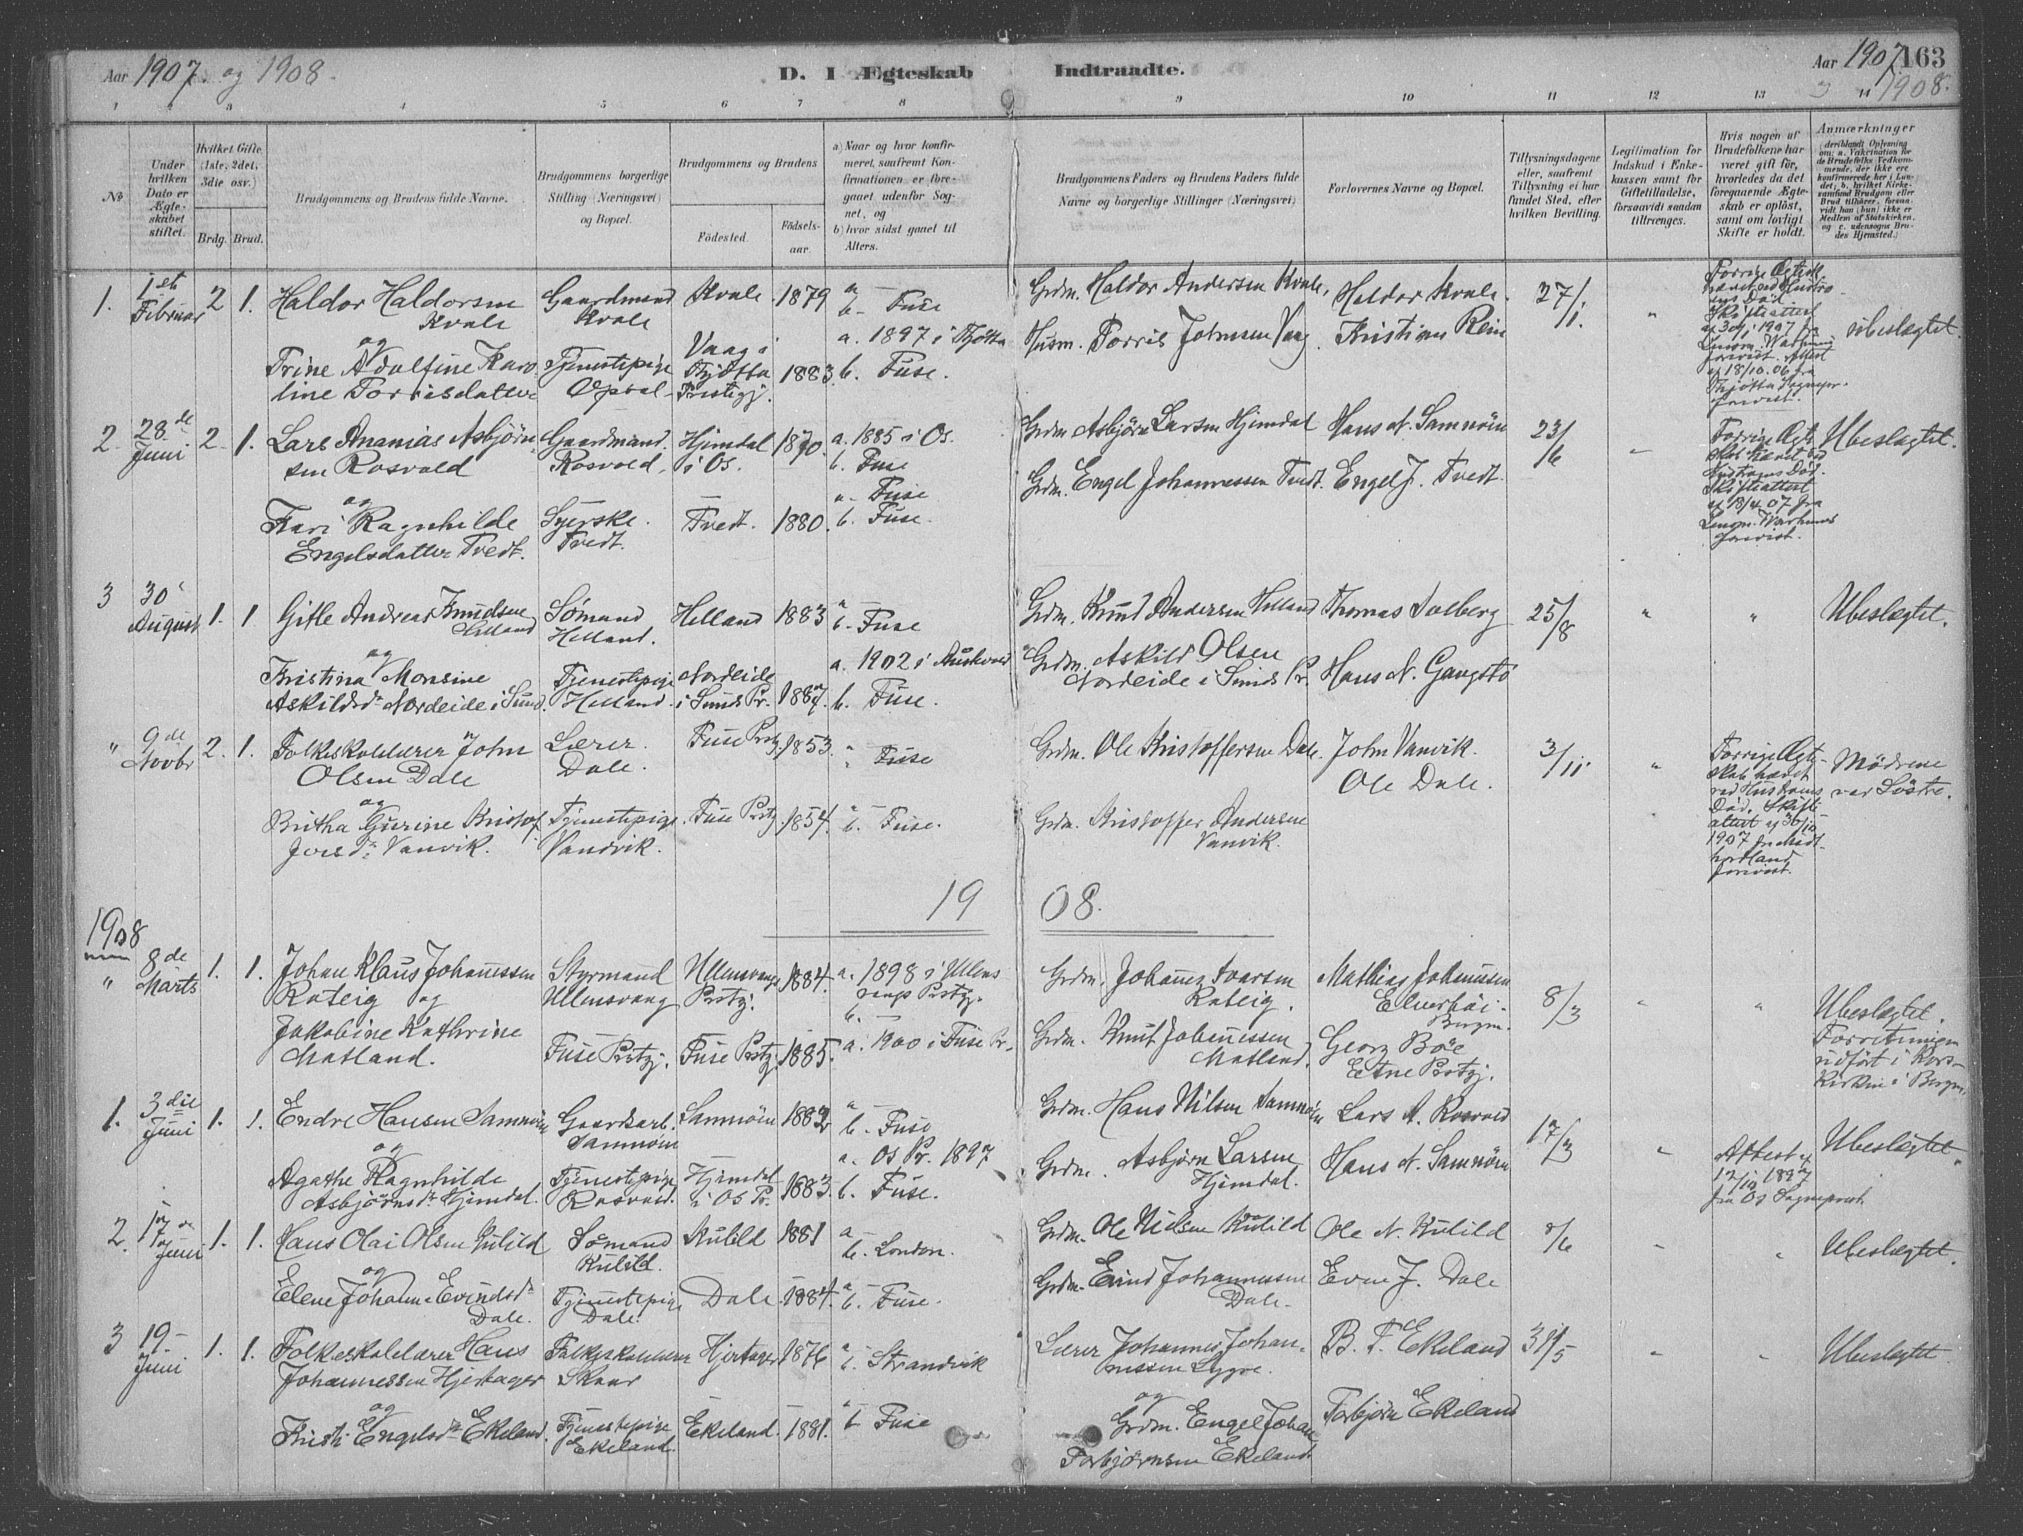 Aar 1907. og 1908.
D. I Ægteskab Indtraadte.
Aar 1907 163
1908.
1 2 3 4 5 6 7 8 9 10 11 12 13 14
No
Under hvilken Dato er Ægteskabet stiftet.
Hvilket Gifte. (1ste, 2det, 3die osv.)
Brdg. Brud.
Brudgommens og Brudens fulde Navne.
Brudgommens borgerlige Stilling (Næringsvei) og Bopæl.
Brudgommens og Brudens
Fødested. Fødselsaar.
a) Naar og hvor konfirmeret, saafremt Konfirmationen er foregaaet udenfor Sognet, og
b) hvor sidst gaaet til Alters.
Brudgommens Faders og Brudens Faders fulde Navne og borgerlige Stillinger (Næringsvei)
Forlovernes Navne og Bopæl.
Tillysningsdagene eller, saafremt Tillysning ei har fundet Sted, efter hvilken Bevilling.
Legitimation for Indskud i Enkekassen samt for Giftetilladelse, forsaavidt saadan tiltrænges.
Hvis nogen af Brudefolkene har været gift før, hvorledes da det foregaaende Ægteskab er opløst, samt om lovligt Skifte er holdt.
Anmærkninger
1. 1ste Februar 2 1. Haldor Haldorsen Kvale Gaardmand Kvale Kvale 1879 a – b. Fuse Grdm. Haldor Andersen Kvale. Haldor Kvale. 27/1. " Forrige Ægtesk. hævet ved Hustrus Død. Ubeslægtet.
og
Trine Adolfine Karoline Torrisdatter Tjenestepige Opsal Vaag i Tjøtta Prestegj. 1883. a. 1897 i Tjøtta b. Fuse. Husm. Torris Johnsen Vaag. Kristian Rein
2. 28de Juni 2 1. Lars Ananias Asbjørnsen Rosvold Gaardmand. Rosvold. Hjimdal i Os. 1870. a. 1885 i Os. b. Fuse Grdm. Asbjørn Larsen Hjimdal Hans N. Samnøin 23/6 Forrige Ægteskab hævet ved Hustrus Død. Skifteattest af 18/4 07 fra Ubeslægtet.
og
Kari Ragnhilde Engelsdatter Tvedt. Syerske. Tvedt. Tvedt. 1880. a. Fuse b. Fuse. Grdm. Engel Johannessen Tvedt. Engel J. Tvedt.
3 30 August 1. 1 Gitle Andreas Knudsen Helland Sømand Helland. Helland 1883 a – b. Fuse Grdm. Knud Andersen Helland Thomas Solberg 25/8 " " Ubeslægtet.
og
Kristina Monsine Askildsdr Nordeide i Sund. Tjenestepige Helland. Nordeide i Sunds Pr. 1887. a. 1902 i Austevold b. Fuse. Grdm. Askild Olsen Nordeide i Sunds Pr. Hans N. Gangstø
" 9de Novbr 2. 1. Folkeskolelærer John Olsen Dale Lærer. Dale. Fuse Prstg. 1853. a – Fuse Grdm. Ole Kristoffersen Dale. John Vanvik. Ole Dale. 3/11. " Forrige Ægteskab hævet ved Hustrus Død. Skifteattest af 30/10 1907 fra Midthordland Mødrene var Søstre.
og
Britha Gurine Kristoffersdr Vanvik. Tjenestepige Vandvik. Fuse Prstg. 1854. a – b. Fuse. Grdm. Kristoffer Andersen Vanvik.
19 08.
1908
" 8de Marts 1. 1. Johan Klaus Johannessen Rateig og Styrmand Ullensvang Ullensvangs Prstgj. 1884. a. 1898 i Ullensvangs Prstgj. b. – Grdm. Johannes Ivarsen Rateig. Mathias Johannesen Elverhøi. Bergen. 8/3 " " Ubeslægtet.
Jakobine Kathrine Matland. Fuse Prstgj. Fuse Prstgj. 1885. a. 1900 i Fuse Pr. Grdm. Knut Johannessen Matland. Georg Bøe Etne Prstgj. Forretningen udført i Korskirken i Bergen.
1. 3die Juni 1. 1. Endre Hansen Samnøin Gaardsarb. Samnøin Samnøin 1882 a – b. Fuse Grdm. Hans Nilsen Samnøin Lars A. Rosvold 17/3 Ubeslægtet.
og
Agathe Ragnhilde Asbjørnsdr Hjimdal. Tjenestepige Rosvold. Hjimdal i Os Pr. 1883. a. Os Pr. 1897 b. Fuse. Grdm. Asbjørn Larsen Hjimdal. Hans N. Samnøin Attest af 12/10 1897 fra Os Sogneprest
2. 17de Juni 1. 1. Hans Olai Olsen Kulild Sømand Kulild. Kulild 1881 a b. London. Grdm. Ole Nielsen Kulild Ole N. Kulild 8/6 Ubeslægtet.
og
Elene Johanne Evindsdr Dale. Tjenestepige Dale. Dale. 1884. a – b. Fuse. Grdm. Evind Johannessen Dale. Even J. Dale
3 19– Juni 1. 1. Folkeskolelærer Hans Johannessen Hjertager Folkeskolelærer Skaar Hjertager 1876 a – b. Strandvik Lærer Johannes Johannessen Lygre. B. T. Ekeland 31/5 Ubeslægtet
og
Kristi Engelsdr Ekeland. Tjenestepige Ekeland. Ekeland. 1881. a – b Fuse Grdm. Engel Johan Torbjørnsen Ekeland Torbjørn Ekeland